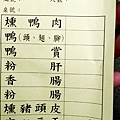 桌號:
燻鴨肉
鴨(頭、翅、腳)
鴨賞
粉肝
香腸
粉腸
燻豬頭皮